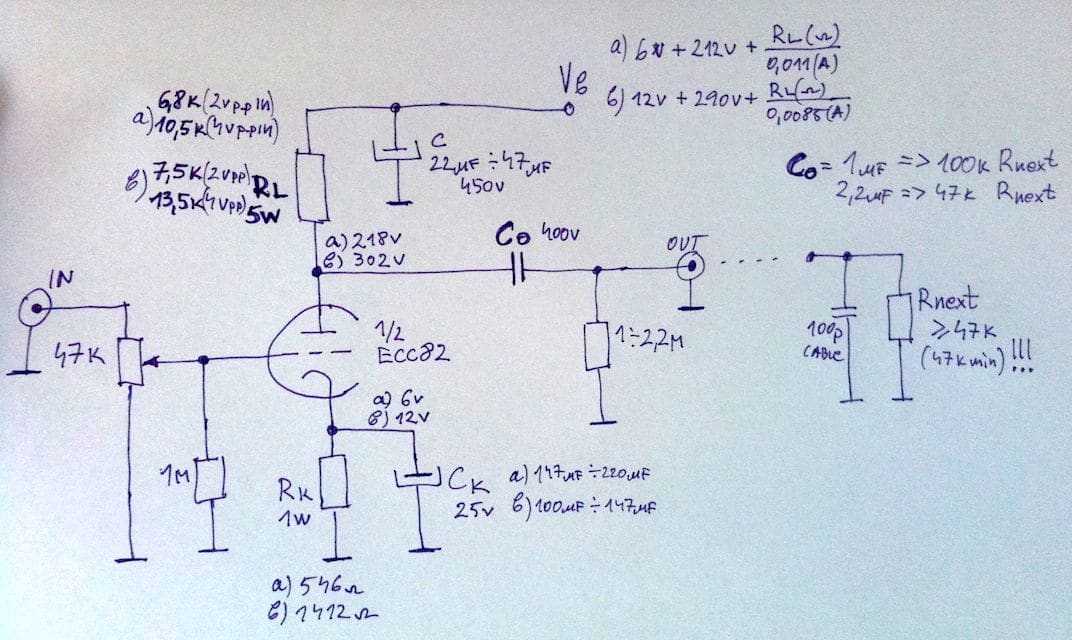 a) 6V + 212V + RL(Ω)
0,011(A)
б) 12V + 290V + RL(Ω)
0,0085(A)
Vб
6,8K(2Vp-p IN)
a) 10,5K(4Vp-pIN)
б) 7,5K(2Vpp)
13,5K(4Vpp)
RL
5W
C
22µF ÷ 47µF
450V
Co = 1µF => 100K Rnext
2,2µF => 47K Rnext
a) 218V
б) 302V
Co 400V
OUT
IN
47K
1/2
ECC82
1÷2,2M
100p
CABLE
Rnext
≥47K
(47Kmin) !!!
a) 6V
б) 12V
1M
RK
1W
CK
25V
a) 147µF÷220µF
б) 100µF÷147µF
a) 546Ω
б) 1412Ω